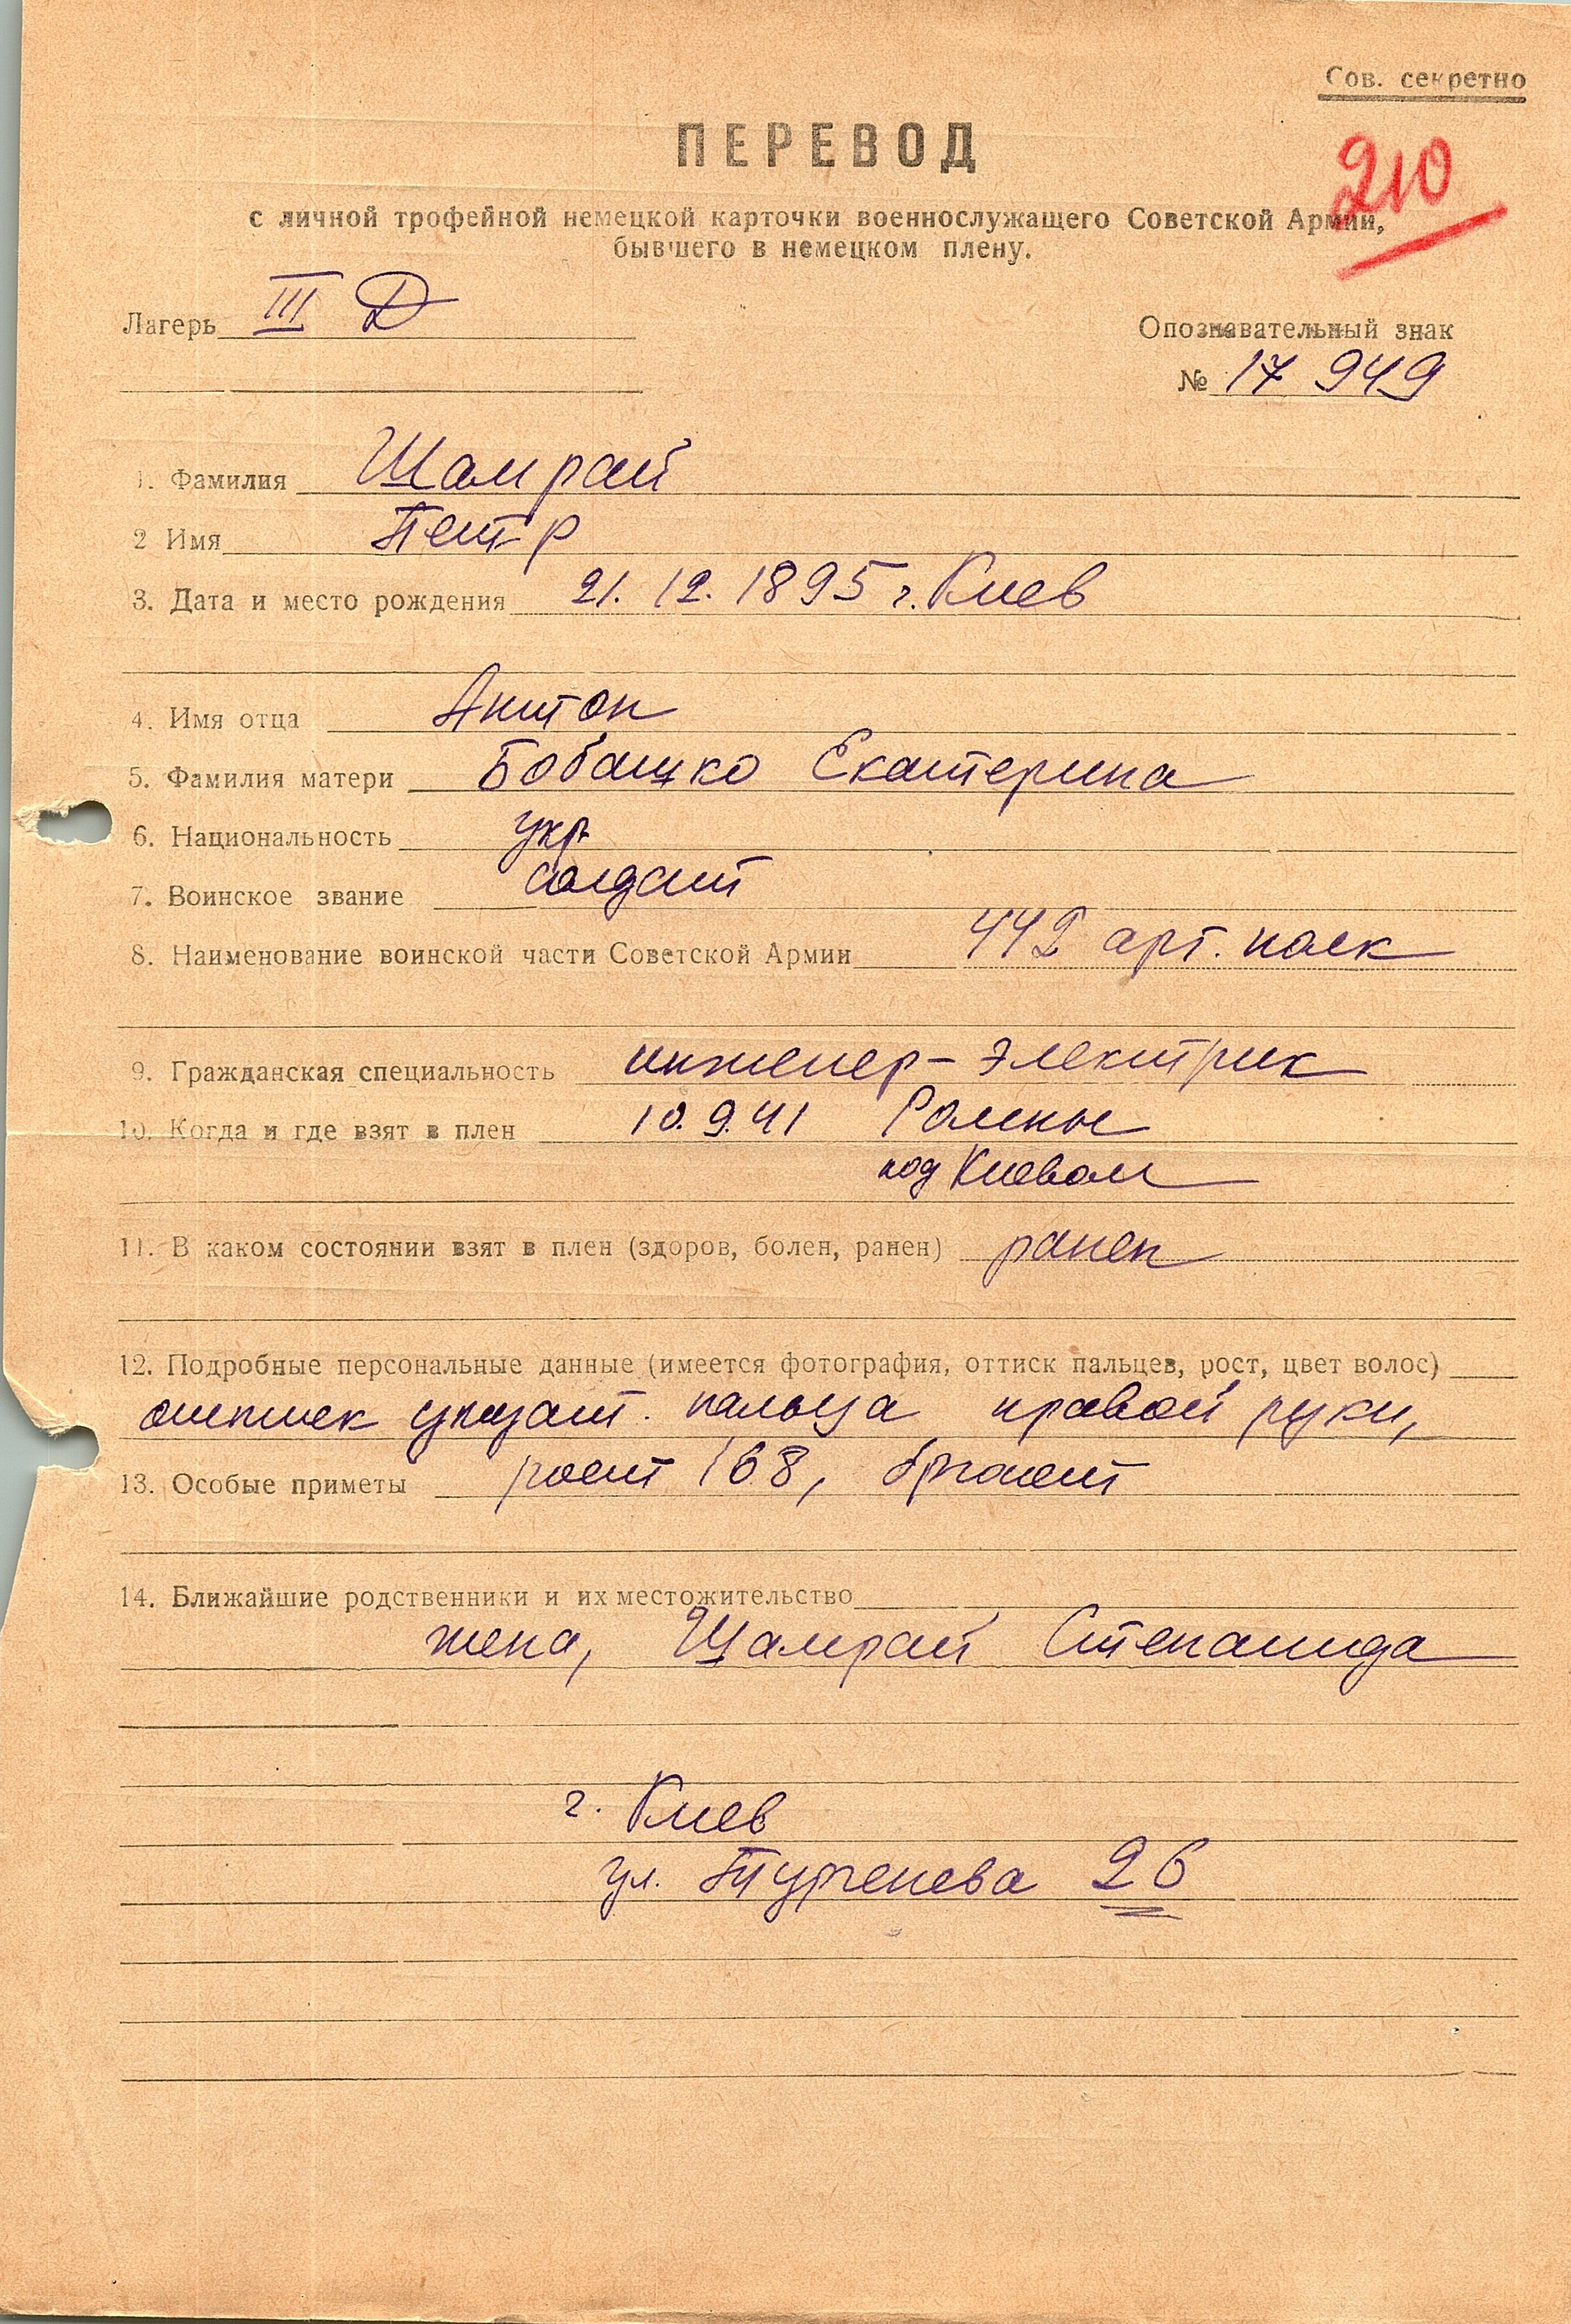 Сов. секретно
ПЕРЕВОД
210
с личной трофейной немецкой карточки военнослужащего Советской Армии,
бывшего в немецком плену.
Лагерь III Д
Опознавательный знак
№ 17 949
1. Фамилия Шамрай
2 Имя Петр
3. Дата и место рождения 21.12.1895 г. Киев
4. Имя отца Антон
5. Фамилия матери Бобашко Екатерина
6. Национальность укр.
7. Воинское звание солдат
8. Наименование воинской части Советской Армии 442 арт. полк
9. Гражданская специальность инженер-электрик
10. Когда и где взят в плен 10.9.41 Ромны
под Киевом
11. В каком состоянии взят в плен (здоров, болен, ранен) ранен
12. Подробные персональные данные (имеется фотография, оттиск пальцев, рост, цвет волос)
оттиск указат. пальца правой руки,
13. Особые приметы рост 168, брюнет
14. Ближайшие родственники и их местожительство
жена, Шамрай Степанида
г. Киев
ул. Тургенева 26